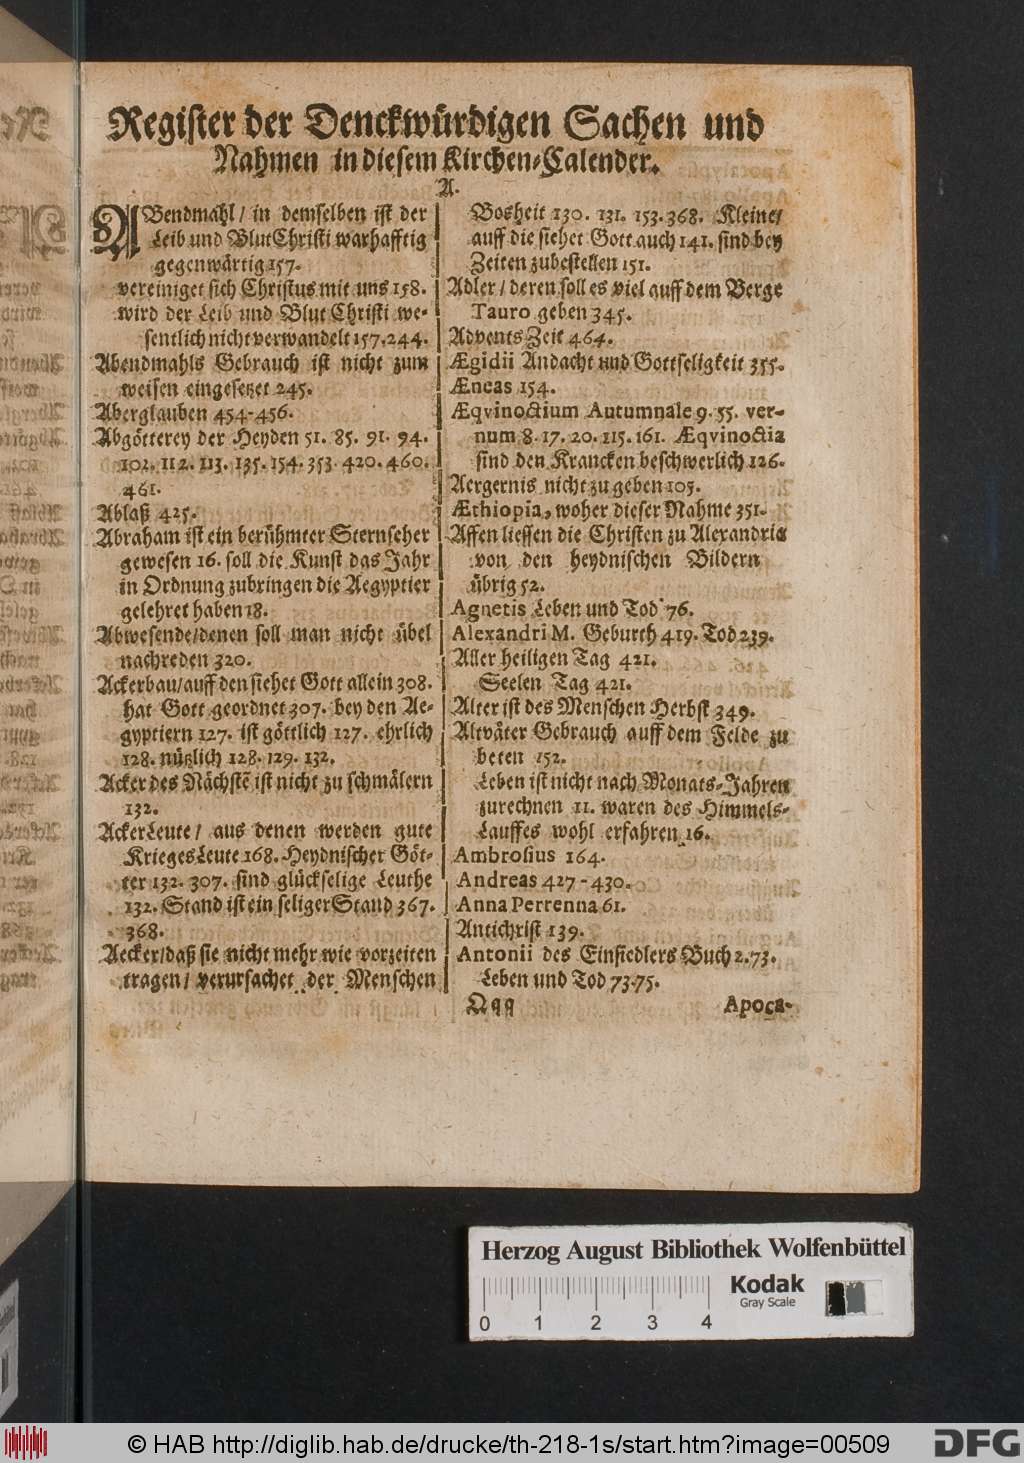 Register der Denckwürdigen Sachen und
Nahmen in diesem Kirchen-Calender.
A.
ABendmahl/ in demselben ist der
Leib und Blut Christi warhafftig
gegenwärtig 157.
vereiniget sich Christus mit uns 158.
wird der Leib und Blut Christi we-
sentlich nicht verwandelt 157. 244.
Abendmahls Gebrauch ist nicht zum
weisen eingesetzet 245.
Aberglauben 454-456.
Abgötterey der Heyden 51. 85. 91. 94.
102. 112. 113. 135. 154. 353. 420. 460.
461.
Ablaß 425.
Abraham ist ein berühmter Sternseher
gewesen 16. soll die Kunst das Jahr
in Ordnung zubringen die Aegyptier
gelehret haben 18.
Abwesende/denen soll man nicht übel
nachreden 320.
Ackerbau/auff den siehet Gott allein 308.
hat Gott geordnet 307. bey den Ae-
gyptiern 127. ist göttlich 127. ehrlich
128. nützlich 128. 129. 132.
Acker des Nächstē ist nicht zu schmälern
132.
AckerLeute/ aus denen werden gute
KriegesLeute 168. Heydnischer Göt-
ter 132. 307. sind glückselige Leuthe
132. Stand ist ein seliger Stand 367.
368.
Aecker/daß sie nicht mehr wie vorzeiten
tragen/ verursachet der Menschen
Bosheit 130. 131. 153. 368. Kleine/
auff die siehet Gott auch 141. sind bey
Zeiten zubestellen 151.
Adler/ deren soll es viel auff dem Berge
Tauro geben 345.
Advents Zeit 464.
Ægidii Andacht und Gottseligkeit 355.
Æneas 154.
Æqvinoctium Autumnale 9. 55. ver-
num 8. 17. 20. 115. 161. Æqvinoctia
sind den Krancken beschwerlich 126.
Aergernis nicht zu geben 105.
Æthiopia, woher dieser Nahme 351.
Affen liessen die Christen zu Alexandria
von den heydnischen Bildern
übrig 52.
Agnetis Leben und Tod 76.
Alexandri M. Geburth 419. Tod 239.
Aller heiligen Tag 421.
Seelen Tag 421.
Alter ist des Menschen Herbst 349.
Altväter Gebrauch auff dem Felde zu
beten 152.
Leben ist nicht nach Monats-Jahren
zurechnen 11. waren des Himmels-
Lauffes wohl erfahren 16.
Ambrosius 164.
Andreas 427-430.
Anna Perrenna 61.
Antichrist 139.
Antonii des Einsiedlers Buch 2. 73.
Leben und Tod 73. 75.
Qqq Apoca-
Herzog August Bibliothek Wolfenbüttel
Kodak
Gray Scale
0 1 2 3 4
© HAB http://diglib.hab.de/drucke/th-218-1s/start.htm?image=00509
DFG